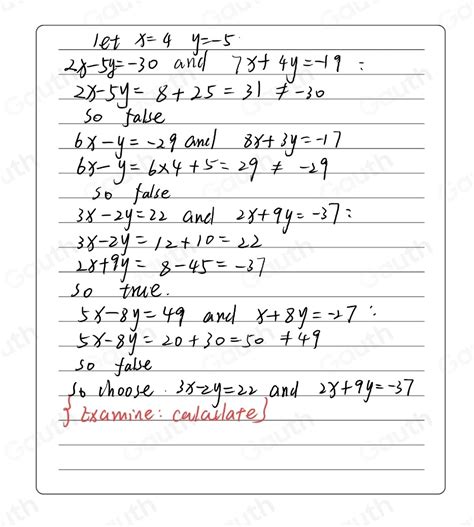 let x=4 y=-5.
2x-5y=-30 and 7x+4y=-19 :
2x-5y= 8+25=31 ≠-30
so false
6x-y=-29 and 8x+3y=-17
6x-y=6x4+5=29 ≠ -29
so false
3x-2y=22 and 2x+9y=-37:
3x-2y=12+10=22
2x+9y= 8-45=-37
so true.
5x-8y=49 and x+8y=-27 :
5x-8y=20+30=50 ≠49
so false
so choose 3x-2y=22 and 2x+9y=-37
{Examine: calculate}